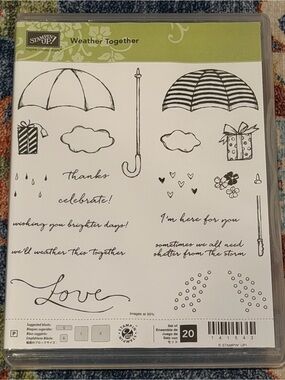 STAMPIN' UP!
Weather Together
Thanks
celebrate!
wishing you brighter days!
I'm here for you
we'll weather this together
sometimes we all need
shelter from the storm
Love
Images at 50%
Suggested blocks:
P
Set of
20
141542
© STAMPIN' UP!